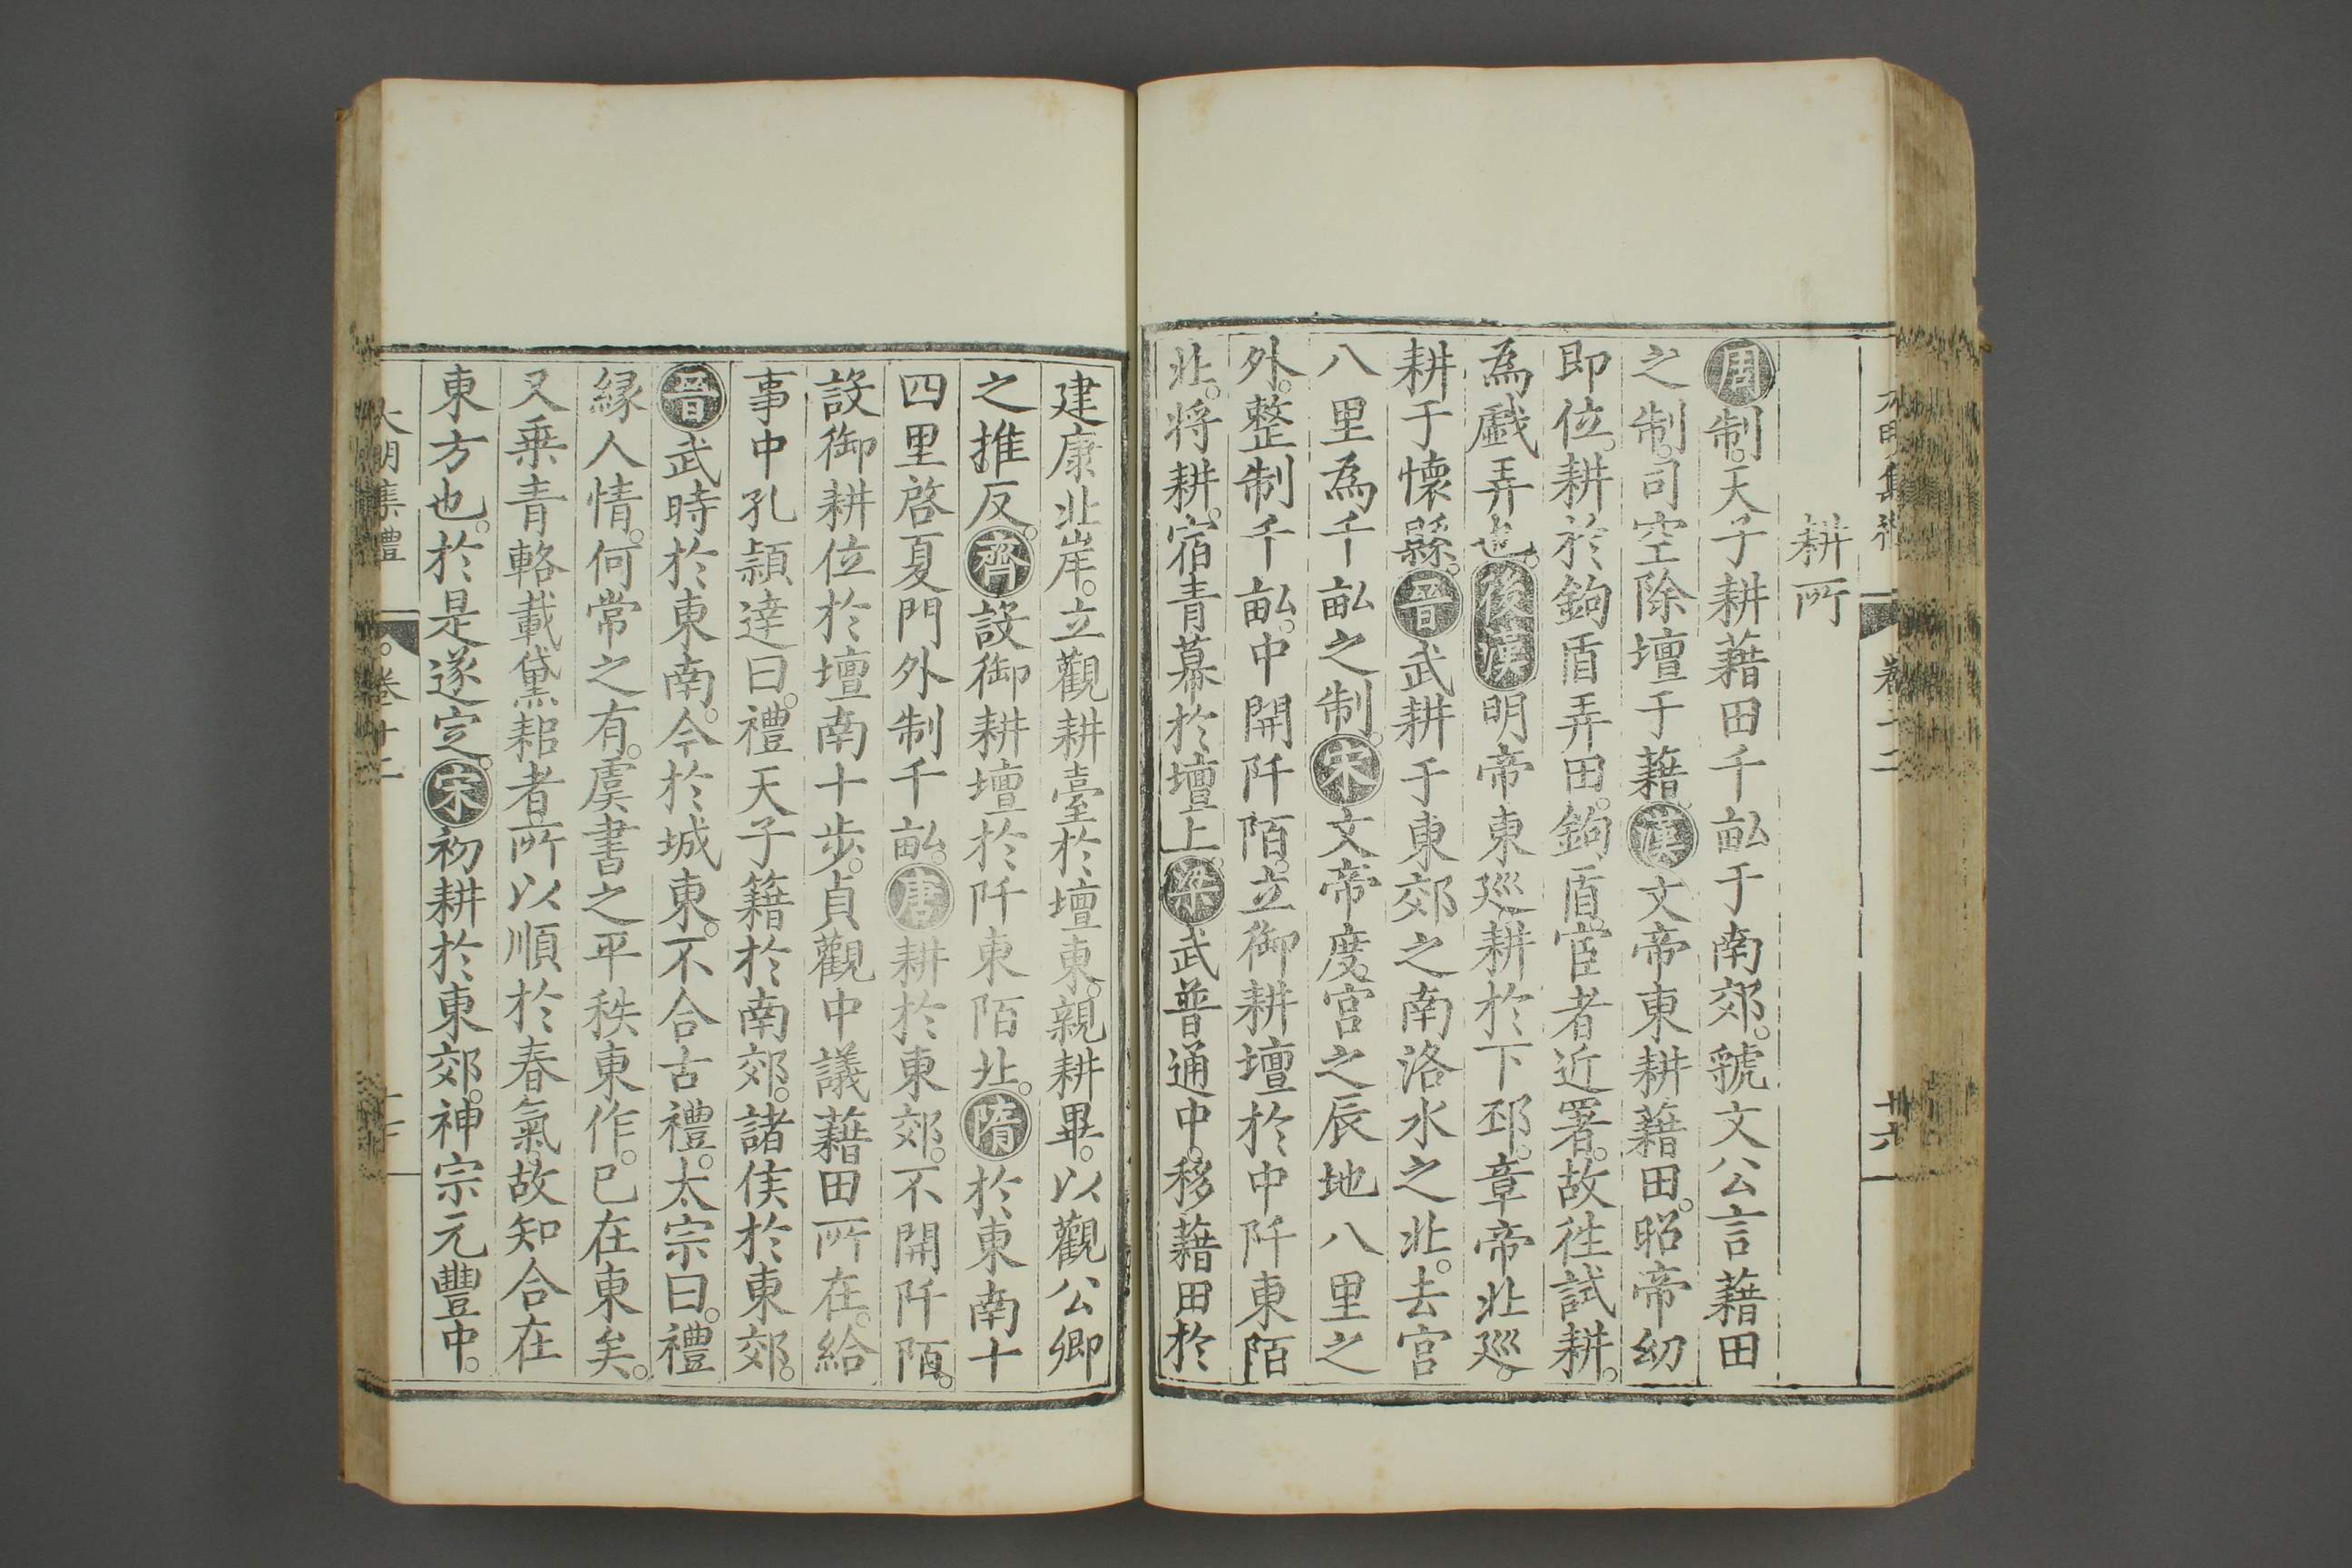 大明集禮 卷十二 十六
耕所
周制天子耕藉田千畝于南郊。虢文公言藉田
之制。司空除壇于藉漢文帝東耕藉田。昭帝幼
即位。耕於鉤盾弄田。鉤盾宦者近署。故徃試耕。
為戱弄也。後漢明帝東廵耕於下邳。章帝北廵。
耕于懷縣。晉武耕于東郊之南洛水之北。去宫
八里為千畝之制。宋文帝度宫之辰地八里之
外。整制千畝。中開阡陌。立御耕壇於中阡東陌
北。将耕。宿青幕於壇上。梁武普通中。移藉田於
建康北岸。立觀耕臺於壇東。親耕畢。以觀公卿
之推反。齊設御耕壇於阡東陌北。隋於東南十
四里啓夏門外制千畝。唐耕於東郊。不開阡陌。
設御耕位於壇南十步。貞觀中議藉田所在。給
事中孔頴達曰。禮天子籍於南郊。諸侯於東郊。
晉武時於東南。今於城東。不合古禮。太宗曰。禮
縁人情。何常之有。虞書之平秩東作。已在東矣。
又乗青輅載黛耜者。所以順於春氣。故知合在
東方也。於是遂定。宋初耕於東郊。神宗元豐中。
大明集禮 卷十二